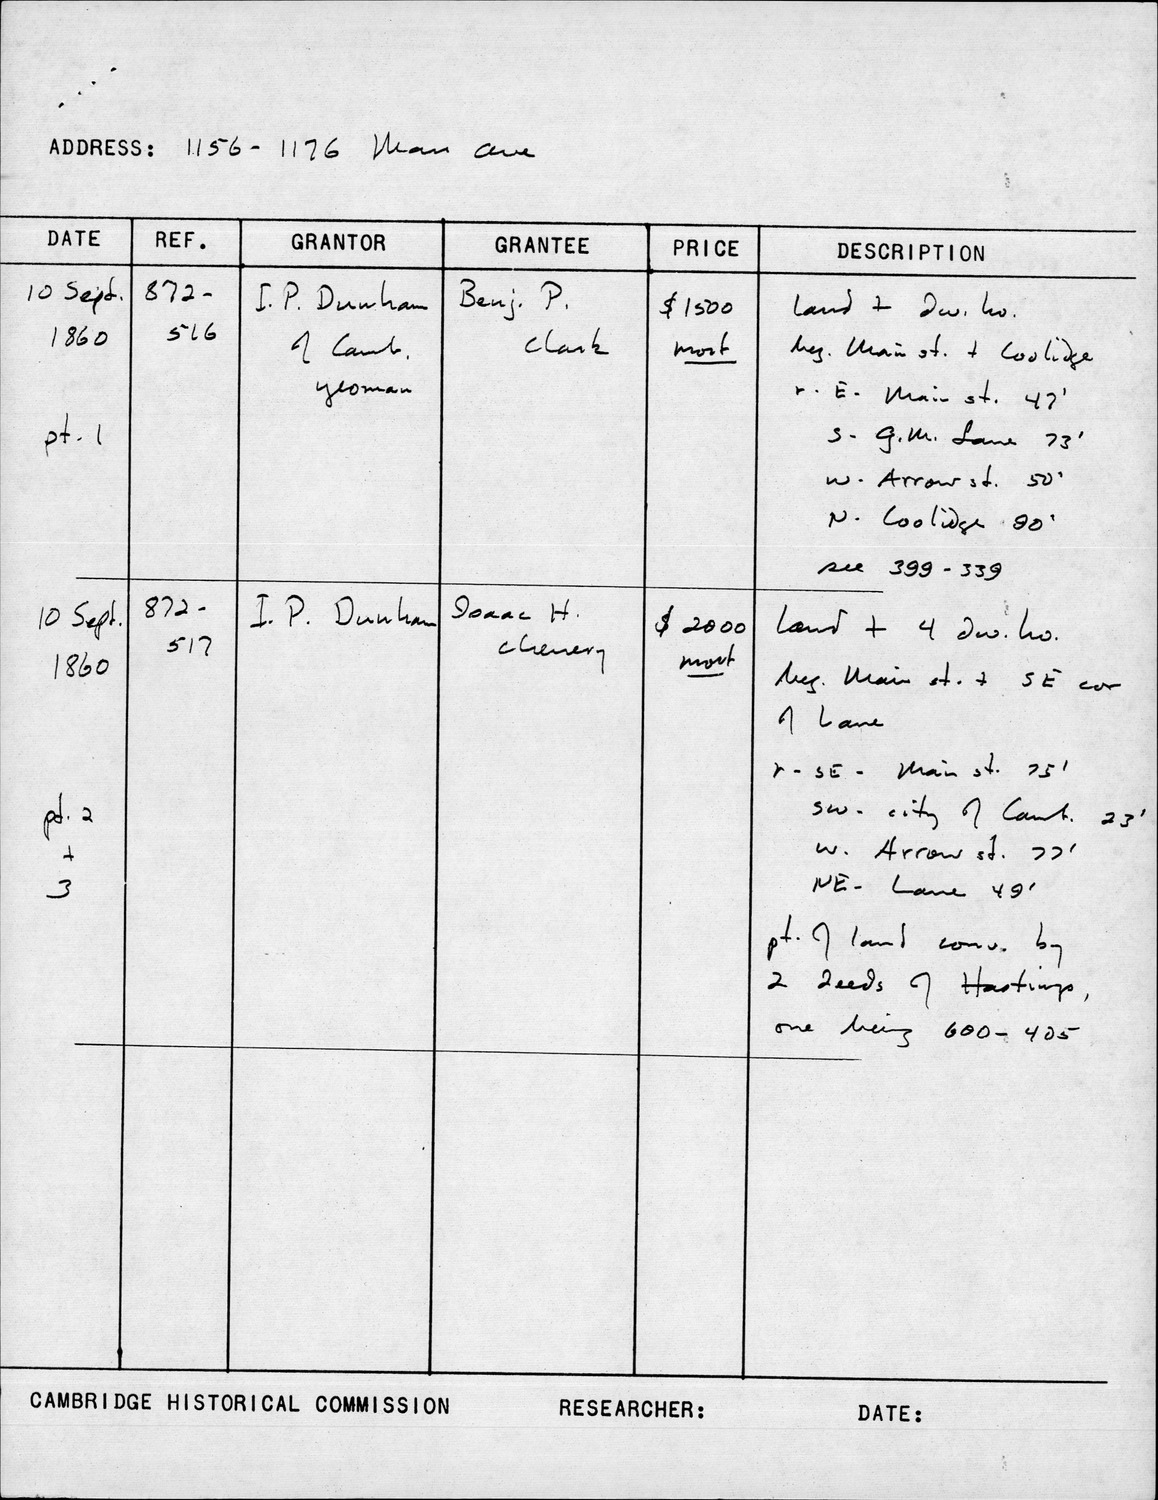 ADDRESS: 1156-1176 Mass ave
DATE REF. GRANTOR GRANTEE PRICE DESCRIPTION
10 Sept. 872- I. P. Dunham Benj. P. $1500 land + dw. ho.
1860 516 of Camb. Clark mort beg. Main st. + Coolidge
yeoman r. E. Main st. 47'
pt. 1 s. G.M. Lane 73'
w. Arrow st. 50'
N. Coolidge 80'
see 399-339
10 Sept. 872- I. P. Dunham Isaac H. $2000 land + 4 dw. ho.
1860 517 Chenery mort beg. Main st. + SE cor
of Lane
r - SE - Main st. 75'
pt. 2 SW - city of Camb. 23'
+ w. Arrow st. 77'
3 NE - Lane 49'
pt. of land conv. by
2 deeds of Hastings,
one being 600-405
CAMBRIDGE HISTORICAL COMMISSION RESEARCHER: DATE: